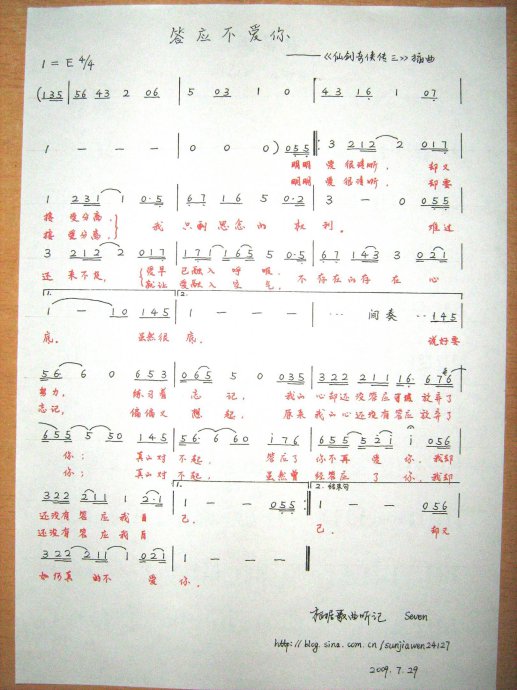 答应不爱你
——《仙剑奇侠传三》插曲
1=E 4/4
(135 | 56 43 2 06 | 5 03 1 0 | 43 16 1 07 |
1 - - - | 0 0 0) 055 |: 3 212 2 017 |
明明 爱很清晰， 却又
明明 爱很清晰， 却要
1 231 1 0·5 | 67 16 5 0·2 | 3 - 0 055 |
接受分离， 我 只剩思念的 权利。 难过
接受分离，
3 212 2 017 | 171 165 5 05 | 67 143 3 021 |
还来不及， 爱早已融入呼吸， 不存在的存在 心
就让爱融入空气，
1. 2.
1 - 10 145 | 1 - - - | - - 间奏 ··145 |
底。 虽然很 底。 说好要
56· 6 0 653 | 065 5 0 035 | 322 211 16 676 |
努力， 练习着 忘记， 我的 心却还没答应 放弃了
忘记， 偏偏又 想起， 原来 我的心还没有答应 放弃了
655 5 50 145 | 56· 6 60 176 | 655 521 1 056 |
你； 真的对 不起， 答应了 你不再 爱 你， 我却
你； 真的对 不起， 虽然曾 经答应 了 你， 我却
1. 2. 结束句
322 211 1 2·1 | 1 - - 055 :| 1 - - 056 |
还没有 答应 我自 己。 己， 却又
还没有 答应 我自
322 211 1 021 | 1 - - - ||
如何真的不 爱 你。
根据歌曲听记 Seven
http://blog.sina.com.cn/sunjiawen24127
2009.7.29